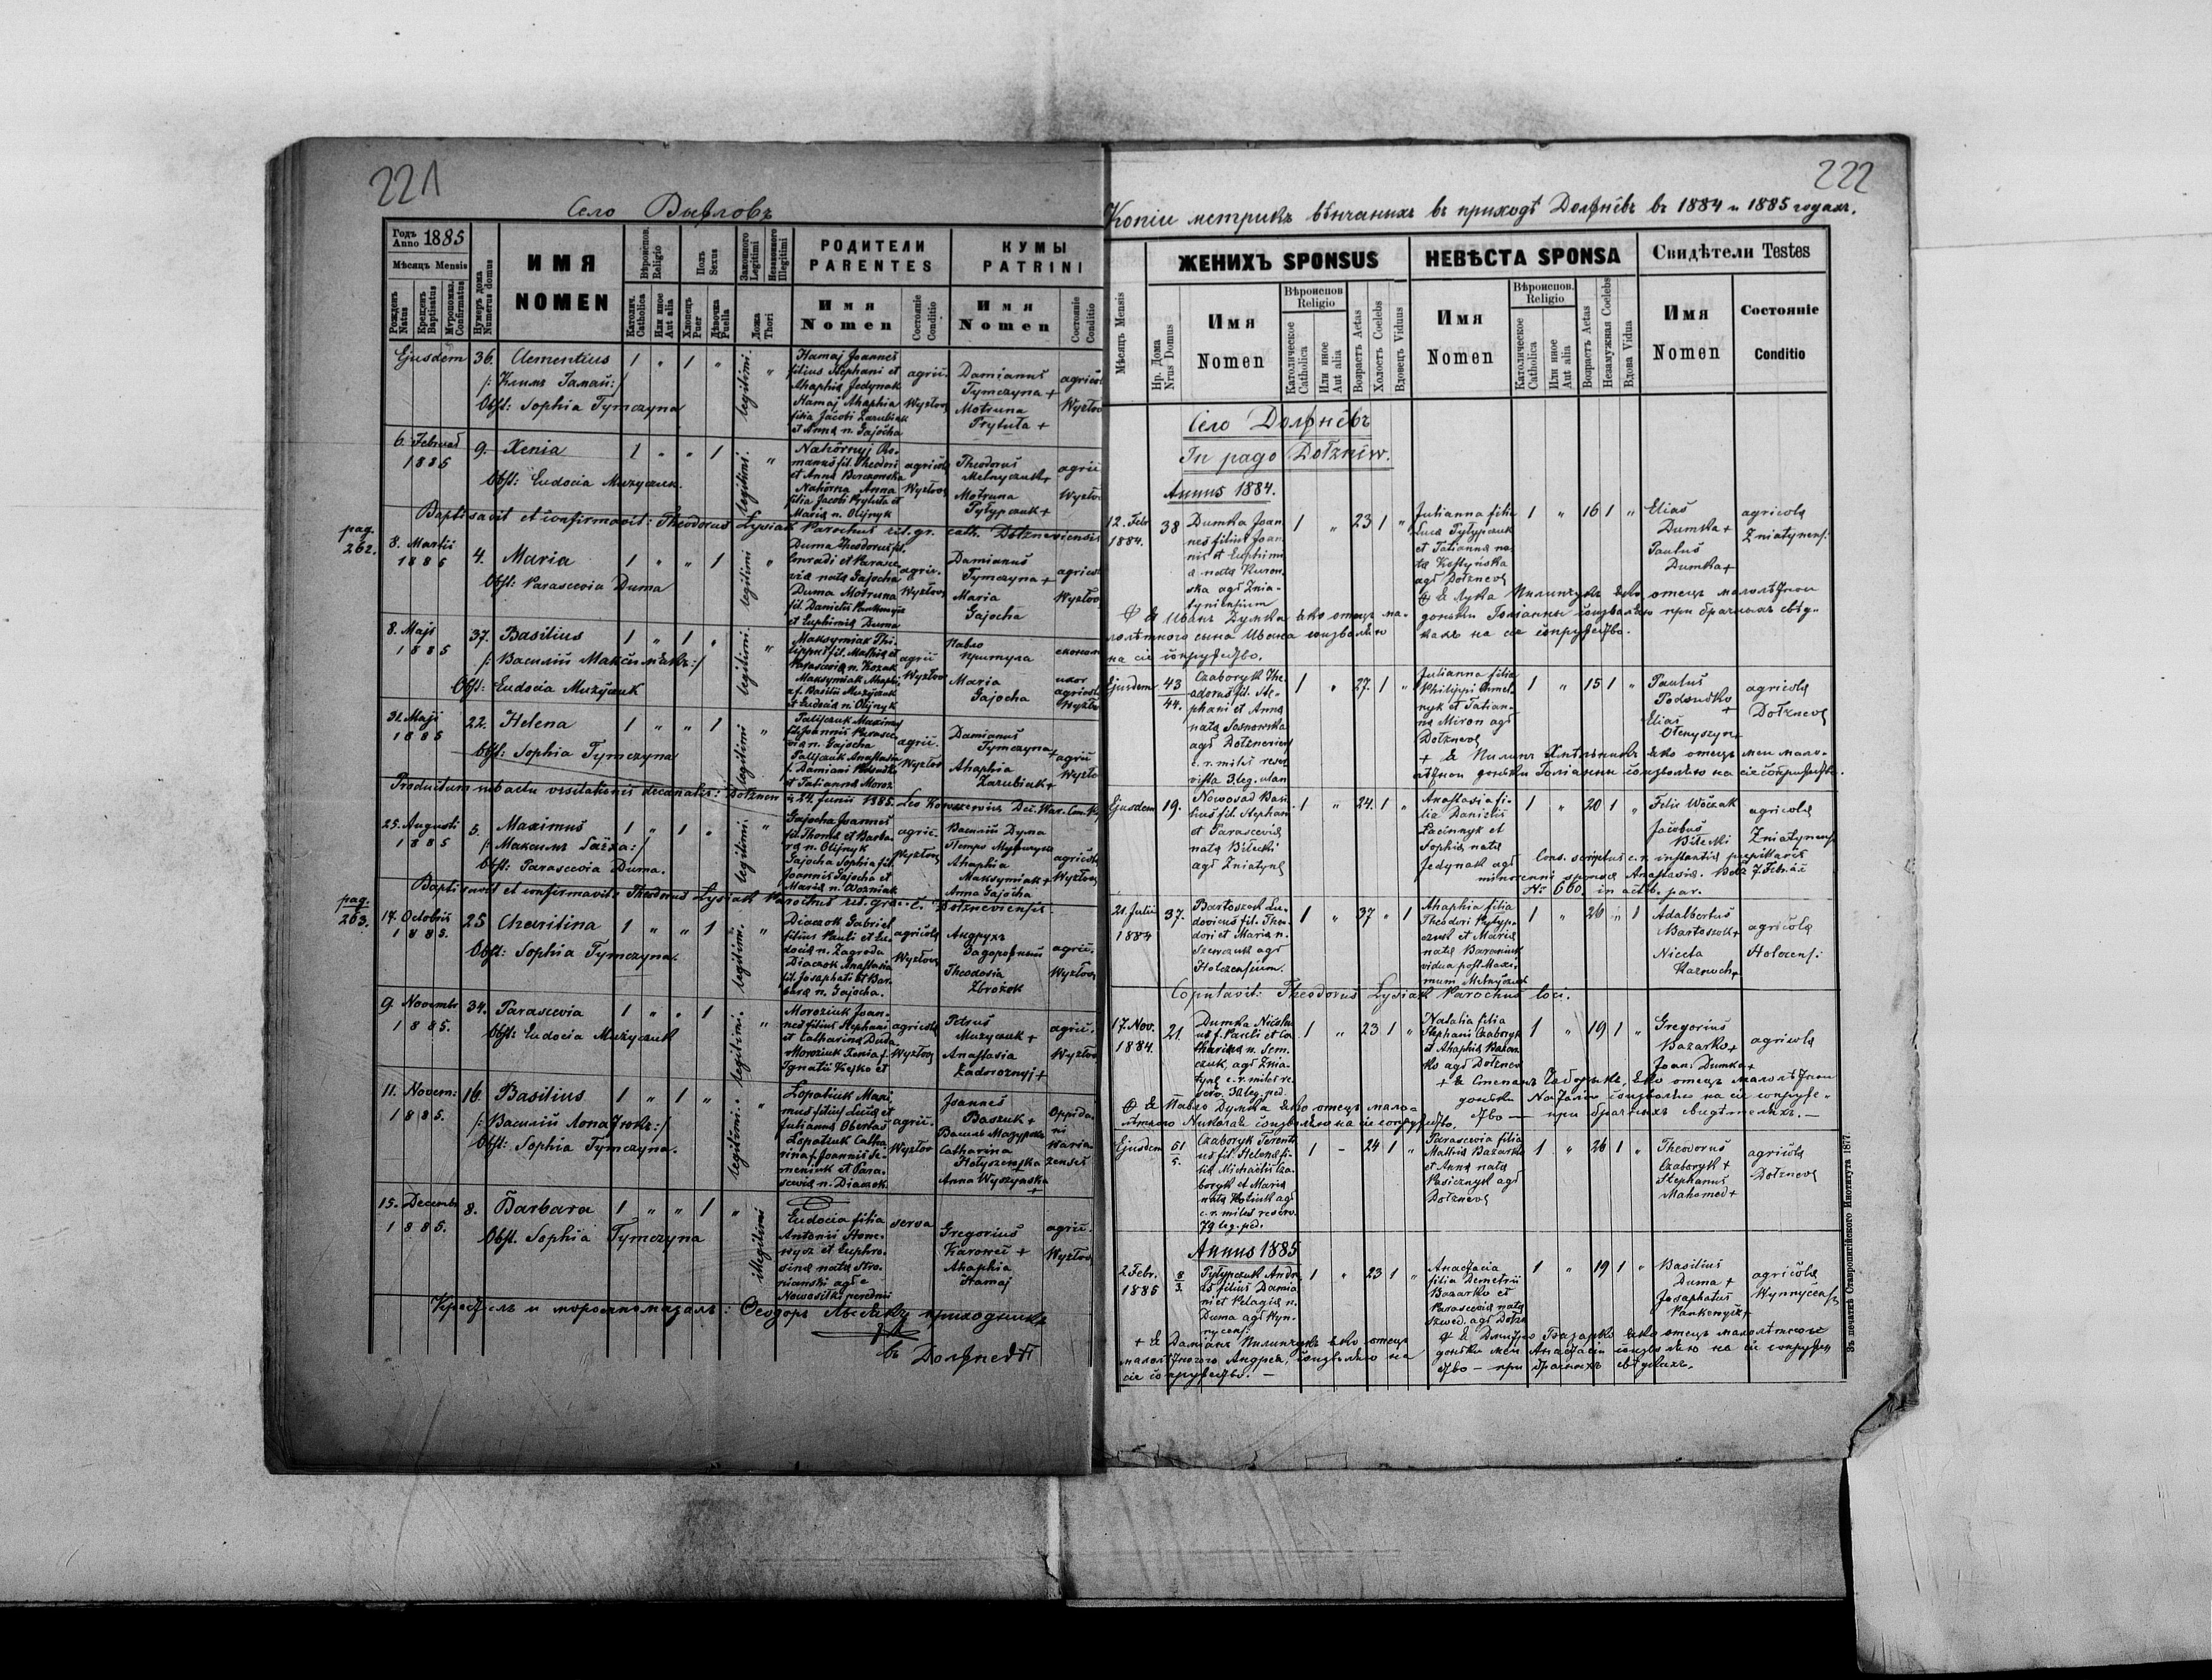 221
Село Выжловъ
Годъ Anno 1885
Мѣсяцъ Mensis
Рожденъ Natus
Крещенъ Baptisatus
Мѵропомаз. Confirmatus
Нумеръ дома Numerus domus
ИМЯ
NOMEN
Вѣроиспов. Religio
Католич. Catholica
Или иное Aut alia
Полъ Sexus
Хлопецъ Puer
Дѣвочка Puella
Законного Legitimi
Незаконного Illegitimi
Ложа Thori
РОДИТЕЛИ
PARENTES
Имя
Nomen
Состояніе Conditio
КУМЫ
PATRINI
Имя
Nomen
Состояніе Conditio
Ejusdem 36. Clementius 1 " 1 " legitimi. "
/: Климъ Гамай :/
Obst: Sophia Tymczyna
Hamaj Joannes
filius Stephani et
Ahaphia Jedynak
Hamaj Ahaphia
filia Jacobi Zarubiuk
et Anna n. Gajocha
agric.
Wyzłov
Damianus
Tymczyna +
Motruna
Prytuła +
agricol
Wyzłov
6. Februar 1885 9. Xenia 1 " " 1 legitimi. "
Obst: Eudocia Muzyczuk.
Nahórnyj Ro-
manus fil. Theodori
et Anna Berezowska
Nahórna Anna
filia Jacobi Prytuła et
Maria n. Olijnyk
agricola
Wyzłov
Theodorus
Melnyczuk +
Motruna
Pyłypczuk +
agric
Wyzłov
Baptisavit et confirmavit: Theodorus Lysiak Parochus rit. gr. cath. Dołzneviensis
pag. 262.
8. Martii 1885 4. Maria 1 " " 1 legitimi "
Obst: Parascevia Duma
Duma Theodorus fil.
Conradi et Parasce-
via nata Gajocha
Duma Motruna
fil. Danielis
et Euphimia Duma
agric.
Wyzłov
Damianus
Tymczyna +
Maria
Gajocha
agricol
Wyzłov
8. Maji 1885 37. Basilius 1 " 1 " legitimi. "
/: Василій Максимякъ :/
Obst: Eudocia Muzyczuk
Maksymiak Phi-
lippus fil. Mathia et
Parascevia n. Kozak
Maksymiak Ahaphi-
a f. Basilii Muzyczuk
et Eudocia n. Olijnyk
agric
Wyzłov
Павло
Притула
Maria
Gajocha
економ
uxor
agricola
Wyzłov
31. Maji 1885 22. Helena 1 " " 1 legitimi "
Obst: Sophia Tymczyna
Palijczuk Maximus
fil. Joannis Parasce-
via n. Gajocha
Palijczuk Anastasia
f. Damiani
et Tatianna Moroz
agric.
Wyzłov
Damianus
Tymczyna +
Ahaphia
Zarubiuk +
agric
Wyzło
Productum sub actu visitationis decanalis: Dołznev 24. Junii 1885.
25. Augusti 1885 5. Maximus 1 " 1 " legitimi. "
/: Максимъ Гаёха :/
Obst: Parascevia Duma.
Gajocha Joannes
fil. Thoma et Barba-
ra n. Olijnyk
Gajocha Sophia fil.
Joannis Gajocha et
Maria n. Wozniak
agric.
Wyzłov
Василій Дума
Ahaphia
Maksymiak +
Anna Gajocha
agricola
Wyzłov
Baptisavit et confirmavit: Theodorus Lysiak Parochus rit. graec. c. Dołzneviensis.
pag. 263.
17. Octobris 1885. 25 Charitina 1 " " 1 legitimi. "
Obst: Sophia Tymczyna.
Diaczok Gabriel
filius Pauli et Eu-
docia n. Zagroda
Diaczok Anastasia
fil. Josaphati et Bar-
bara n. Gajocha.
agricola
Wyzłov
Андрухъ
Загорожный
Theodosia
Zbrożok
agric.
Wyzłov
9. Novembr 1885. 34. Parascevia 1 " " 1 legitimi. "
Obst: Eudocia Muzyczuk
Moroziuk Joan-
nes filius Stephani
et Catharina Duda
Moroziuk Xenia f.
Ignatii Kejko et
agricola
Wyzłov
Petrus
Muzyczuk +
Anastasia
Zadoroznyj +
agric.
Wyzłov
11. Novem: 1885. 16. Basilius 1 " 1 " legitimi. "
/: Василій Лопатюкъ :/
Obst: Sophia Tymczyna.
Lopatiuk Maxi-
mus filius Luca et
Julianna Obertas
Lopatiuk Catha-
rina f. Joannis Se-
meniuk et Para-
scevia n. Diaczok.
agric.
Wyzłov
Joannes
Baszuk +
Catharina
Hołyszewska
Anna Wyszynska +
Oppida-
ni
Waria-
zenses
15. Decembr 1885. 8. Barbara 1 " " 1 " illegitimi
Obst. Sophia Tymczyna
Eudocia filia
Antonii
et Euphro-
sina nata
agr.
serva
Gregorius
Karowec +
Ahaphia
Hamaj
agric.
Wyzłov
Крестилъ и мѵропомазалъ: Ѳеодоръ Лысякъ приходникъ
въ Должневѣ
222
Копіи метрикъ вѣнчаныхъ въ приходѣ Должнёвъ въ 1884 и 1885 годахъ.
Мѣсяцъ Mensis
Нр. Дома Nrus Domus
ЖЕНИХЪ SPONSUS
Имя
Nomen
Вѣроиспов Religio
Католическое Catholica
Или иное Aut alia
Возрастъ Aetas
Холостъ Coelebs
Вдовецъ Viduus
НЕВѢСТА SPONSA
Имя
Nomen
Вѣроиспов. Religio
Католическое Catholica
Или иное Aut alia
Возрастъ Aetas
Незамужная Coelebs
Вдова Vidua
Свидѣтели Testes
Имя
Nomen
Состояніе
Conditio
Село Должнёвъ
In pago Dołzniw.
Annus 1884.
12. Febr 1884. 38 Dumka Joan-
nes filius Joan-
nis et Euphimi-
a nata Kuron-
ska agr Znia-
tynensium
1 " 23 1 "
Julianna filia
Luca Pyłypczuk
et Tatianna na-
ta Kostynska
agr Dołznev
1 " 16 1 "
Elias
Dumka +
Paulus
Dumka +
agricola
Zniatynens:
Иванъ Думка яко отецъ ма-
лолѣтного сына Ивана соизволяю
на сіе супружество.
Лука Пилипчукъ яко отецъ малолѣтной
доньки Юліанны соизволяю при брачныхъ свѣд-
кахъ на сіе супружество.
Ejusdem 43/44. Czaboryk The-
odorus fil. Ste-
phani et Anna
nata Sosnowska
agr Dołznevien
c. r. miles reser-
vista 3. leg. ulan
1 " 27. 1 "
Julianna filia
Philippi Chmel-
nyk et Tatian-
na Miron agr
Dołznev
1 " 15 1 "
Paulus
Podsudko +
Elias
Ołenyszyn +
agricola
Dołznev
+ Я Пилипъ Хмѣльникъ яко отецъ моей мало-
лѣтной доньки Юліанны соизволяю на сіе супружество.
Ejusdem 19. Nowosad Basi-
lius fil. Stephani
et Parascevia
nata Bilecki
agr Zniatyn
1 " 24. 1 "
Anastasia fi-
lia Danielis
Łacinnyk et
Sophia nata
Jedynak agr
1 " 20 1 "
Felix Wőczak
Jacobus
Bilecki
agricola
Zniatynens
minorenni sponsa Anastasia. 7 Februar
Nr 660. in actib. par.
21. Julii 1884 37. Bartoszek Lu-
dovicus fil. Theo-
dori et Maria n.
Szewczuk agr
Hołczensium.
1 " 37 " 1
Ahaphia filia
Theodori Pyłyp-
czuk et Maria
nata Baraniuk
vidua post Maxi-
mum Melnyczuk
1 " 26 " 1
Adalbertus
Bartoszek +
Niceta
Kaznoch +
agricola
Hołczens:
Copulavit: Theodorus Lysiak Parochus loci.
17. Nov. 1884. 21. Dumka Nicola-
us f. Pauli et Ca-
tharina n. Sem-
czuk, agr Znia-
tyn c. r. miles re-
serv. 30 leg. ped.
1 " 23 1 "
Natalia filia
Stephani Czaboryk
et Ahaphia Bazar-
ko agr Dołznev
1 " 19 1 "
Gregorius
Bazarko +
Joann Dumka +
agricola
+ Я Степанъ Чаборыкъ, яко отецъ малолѣтной
доньки Наталіи соизволяю на сіе супруже-
ство — при брачныхъ свидѣтеляхъ. —
Павло Думка яко отецъ мало-
лѣтного Николая соизволяю на сіе супружество.
Ejusdem 51/5. Czaboryk Terenti-
us fil. Helena fi-
lia Michaelis Cza-
boryk et Maria
nata Hołiuk agr
c. r. miles reserv.
79 leg. ped.
1 - 24 1 "
Parascevia filia
Mathia Bazarko
et Anna nata
Pasicznyk agr
Dołznev
1 " 26 1 "
Theodorus
Czaboryk +
Stephanus
Mahomed +
agricola
Dołznev
Annus 1885
2 Febr. 1885 8/3. Pyłypczuk Andre-
as filius Damia-
ni et Pelagia n.
Duma agr Wyn-
nycens:
1 " 23 1 "
Anastasia
filia Demetrii
Bazarko et
Parascevia nata
Szwed. agr Dołzn
1 " 19 1 "
Basilius
Duma +
Josaphatus
Pankowycz +
agricola
Wynnycens
+ Я Даміанъ Пилипчукъ яко отецъ
малолѣтного Андрея, соизволяю на
сіе супружество. —
Я Дмитро Базарко яко отецъ малолѣтной
доньки моей Анастасіи соизволяю на сіе супруже-
ство — при брачныхъ свѣдкахъ.
Въ печатнѣ Ставропигійского Института 1877.